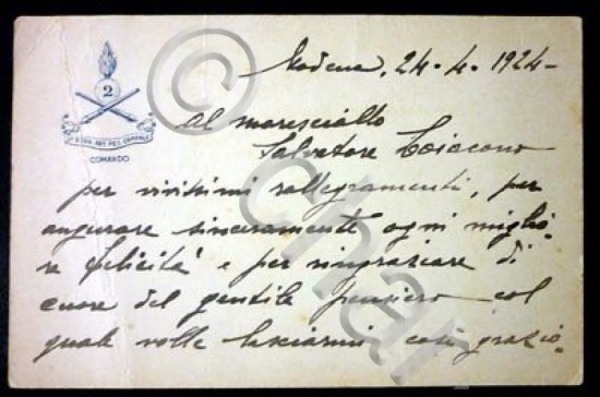 Modena, 24-4-1924-
2
COMANDO
Al maresciallo
Salvatore Loiacono
per vivissimi rallegramenti, per
augurare sinceramente ogni miglio-
re felicità e per ringraziare di
cuore del gentile pensiero col
quale volle lasciarmi così grazio-
© char